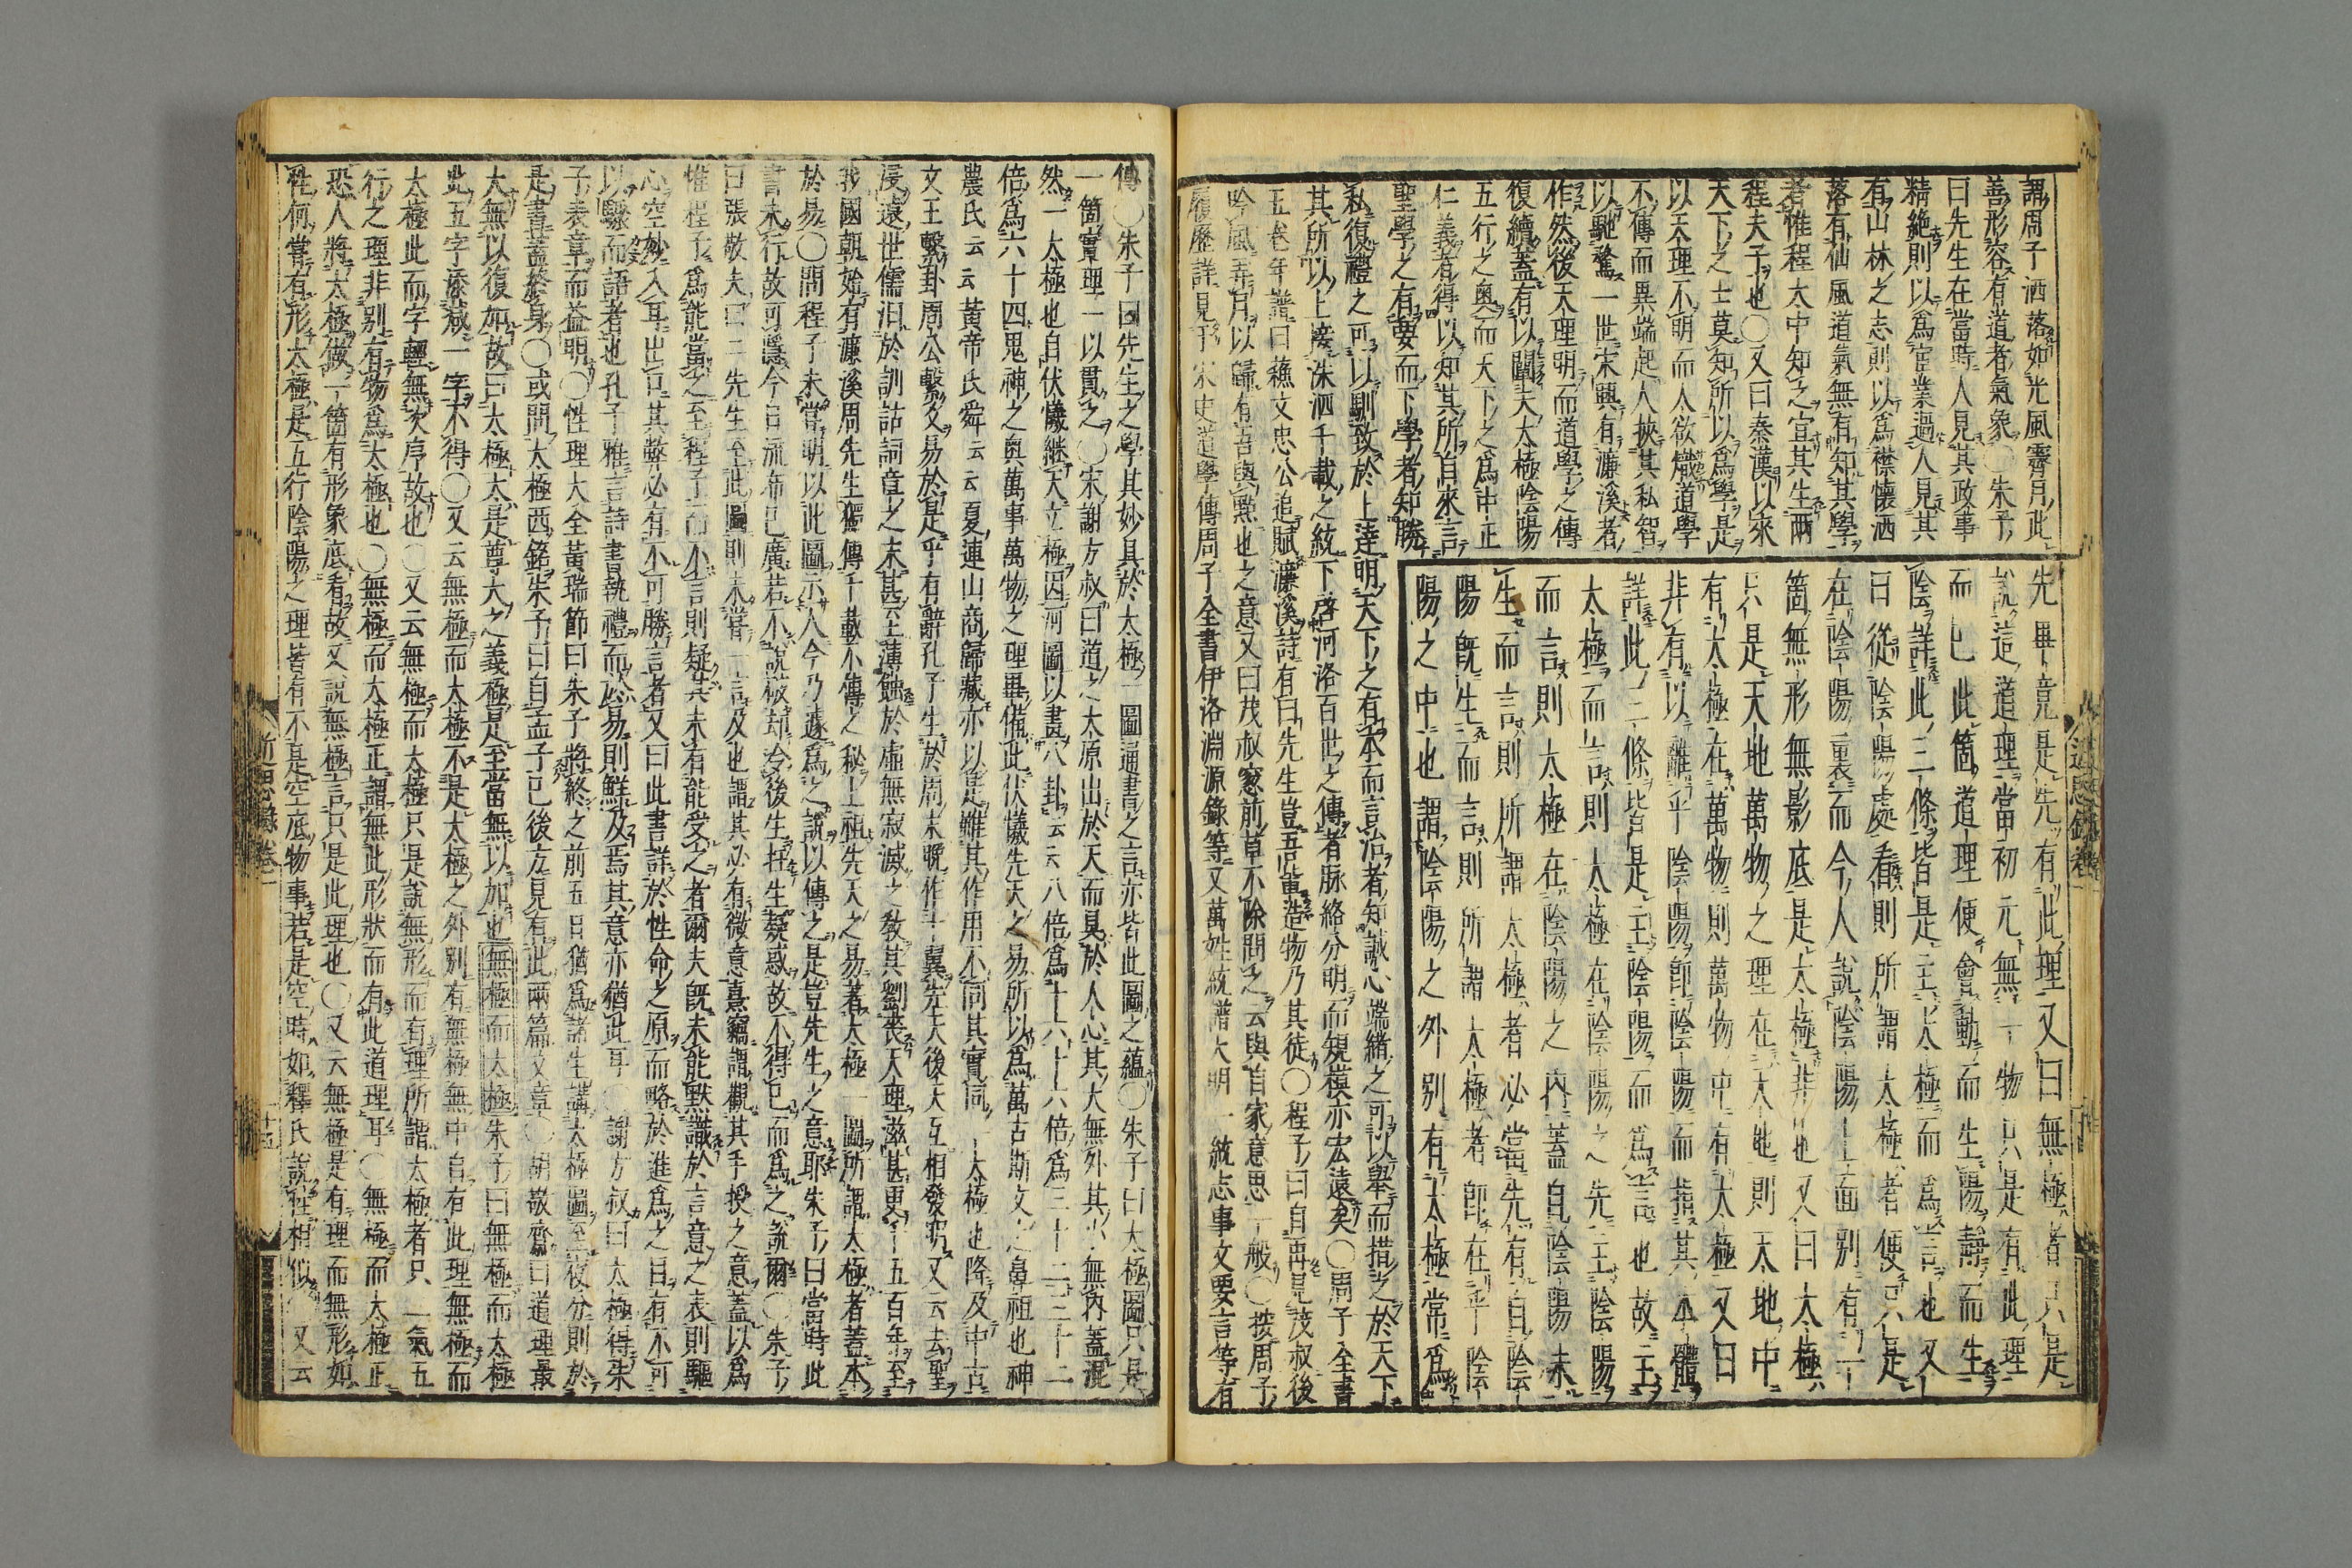 謂周子洒落如光風霽月此
善形容有道者氣象〇朱子
曰先生在當時人見其政事
精絶則以爲宦業過人見其
有山林之志則以爲襟懷洒
落有仙風道氣無有知其學
者惟程太中知之宜其生兩
程夫子也〇又曰秦漢以來
天下之士莫知所以爲學是
以天理不明而人欲熾道學
不傳而異端起人挾其私智
以馳騖一世宋興有濂溪者
作然後天理明而道學之傳
復續蓋有以闡夫太極陰陽
五行之奧而天下之爲中正
仁義者得以知其所自來言
聖學之有要而下學者知勝
私復禮之可以馴致於上達明天下之有本而言治者知誠心端緒之可以舉而措之於天下
其所以上接洙泗千載之統下啓河洛百世之傳者脉絡分明而規模亦宏遠矣〇周子全書
五卷年譜曰穐文忠公追賦濂溪詩有曰先生豈吾輩造物乃其徒〇程子曰自再見茂叔後
吟風弄月以歸有吾與點也之意又曰茂叔窓前草不除問之云與自家意思一般〇按周子
履歷詳見于宋史道學傳周子全書伊洛淵源錄等又萬姓統譜大明一統志事文要言等有
先畢竟是先有此理又曰無極者只是
說這道理當初元無一物只是有此理
而已此箇道理便會動而生陽靜而生
陰詳此三條皆是主太極而爲言也又
曰從陰陽處看則所謂太極者便只是
在陰陽裏而今人說陰陽上面別有一
箇無形無影底是太極非也又曰太極
只是天地萬物之理在天地則天地中
有太極在萬物則萬物中有太極又曰
非有以離乎陰陽即陰陽而指其本體
詳此三條皆是主陰陽而爲言也故主
太極而言則太極在陰陽之先主陰陽
而言則太極在陰陽之內蓋自陰陽未
生而言則所謂太極者必當先有自陰
陽既生而言則所謂太極者即在乎陰
陽之中也謂陰陽之外別有太極常爲
近思錄卷一
傳〇朱子曰先生之學其妙具於太極一圖通書之言亦皆此圖之蘊〇朱子曰太極圖只是
一箇實理一以貫之〇宋謝方叔曰道之太原出於天而具於人心其大無外其小無內蓋混
然一太極也自伏犧繼天立極因河圖以畫八卦云云八倍爲十六十六倍爲三十二三十二
倍爲六十四鬼神之奧萬事萬物之理畢備此伏犧先天之易所以爲萬古斯文之鼻祖也神
農氏云云黃帝氏舜云云夏連山商歸藏亦以是雖其作用不同其實同一太極也降及中古
文王繫卦周公繫爻易於是乎有辭孔子生於周末晚作十翼先天後天互相發明又云去聖
浸遠世儒汩於訓詁詞章之末甚至薄蝕於虛無寂滅之敎其斲喪天理滋甚更千五百年至
我國朝始有濂溪周先生獨傳千載不傳之秘上祖先天之易著太極一圖所謂太極者蓋本
於易〇問程子未嘗明以此圖示人今乃遽爲之說以傳之是豈先生之意耶朱子曰當時此
書未行故可隱今日流布已廣若不說破却令後生枉生疑惑故不得已而爲之說爾〇朱子
曰張敬夫曰二先生至此圖則未嘗一言及也謂其必有微意熹竊謂觀其手授之意蓋以爲
惟程子爲能當之至程子而不言則疑其未有能受之者爾夫既未能默識於言意之表則驅
心空妙入耳出口其弊必有不可勝言者又曰此書詳於性命之原而略於進爲之目有不可
以驟而語者也孔子雅言詩書執禮而於易則鮮及焉其意亦猶此耳〇謝方叔曰太極得朱
子表章而益明〇性理大全黃瑞節曰朱子將終之前五日猶爲諸生講太極圖至夜分則於
是書蓋終身〇或問太極西銘朱子曰自孟子已後方見有此兩篇文章〇胡敬齋曰道理最
大無以復加故曰太極太是尊大之義極是至當無以加也無極而太極朱子曰無極而太極
此五字添減一字不得〇又云無極而太極不是太極之外別有無極無中自有此理無極而
太極此而字輕無次序故也〇又云無極而太極只是說無形而有理所謂太極者只二氣五
行之理非別有物爲太極也〇無極而太極正謂無此形狀而有此道理耳〇無極而太極正
恐人將太極做一箇有形象底看故又說無極言只是此理也〇又云無極是有理而無形如
性何嘗有形太極是五行陰陽之理皆有不是空底物事若是空時如釋氏說性相似〇又云
近思錄卷一
十五